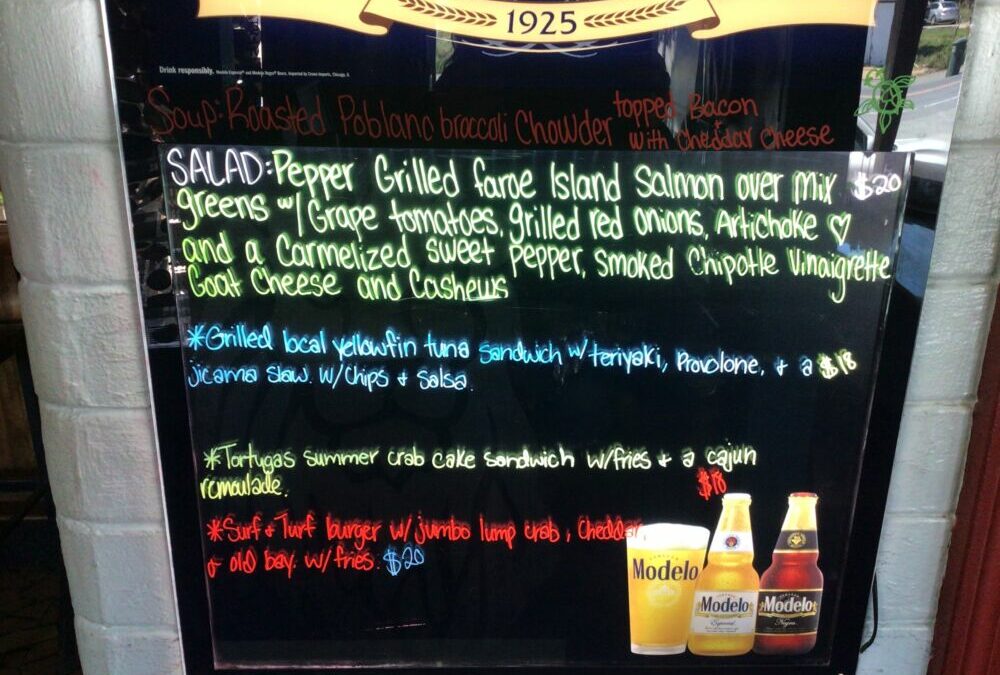 1925
Drink responsibly. Modelo Especial® and Modelo Negra® Beers. Imported by Crown Imports, Chicago, IL
Soup: Roasted Poblano broccoli Chowder topped Bacon
with Cheddar Cheese
SALAD: Pepper Grilled faroe Island Salmon over mix $20
greens w/ Grape tomatoes, grilled red onions, Artichoke ♡
and a Carmelized sweet Pepper, Smoked Chipotle Vinaigrette
Goat Cheese and Cashews
*Grilled local yellowfin tuna sandwich w/ teriyaki, Provolone, + a $18
jicama slaw. w/chips + salsa.
*Tortugas summer crab cake sandwich w/fries + a cajun
remoulade. $18
*Surf + Turf burger w/ jumbo lump crab, cheddar,
+ old bay. w/fries. $20
Modelo
Modelo
Especial
Modelo
Negra